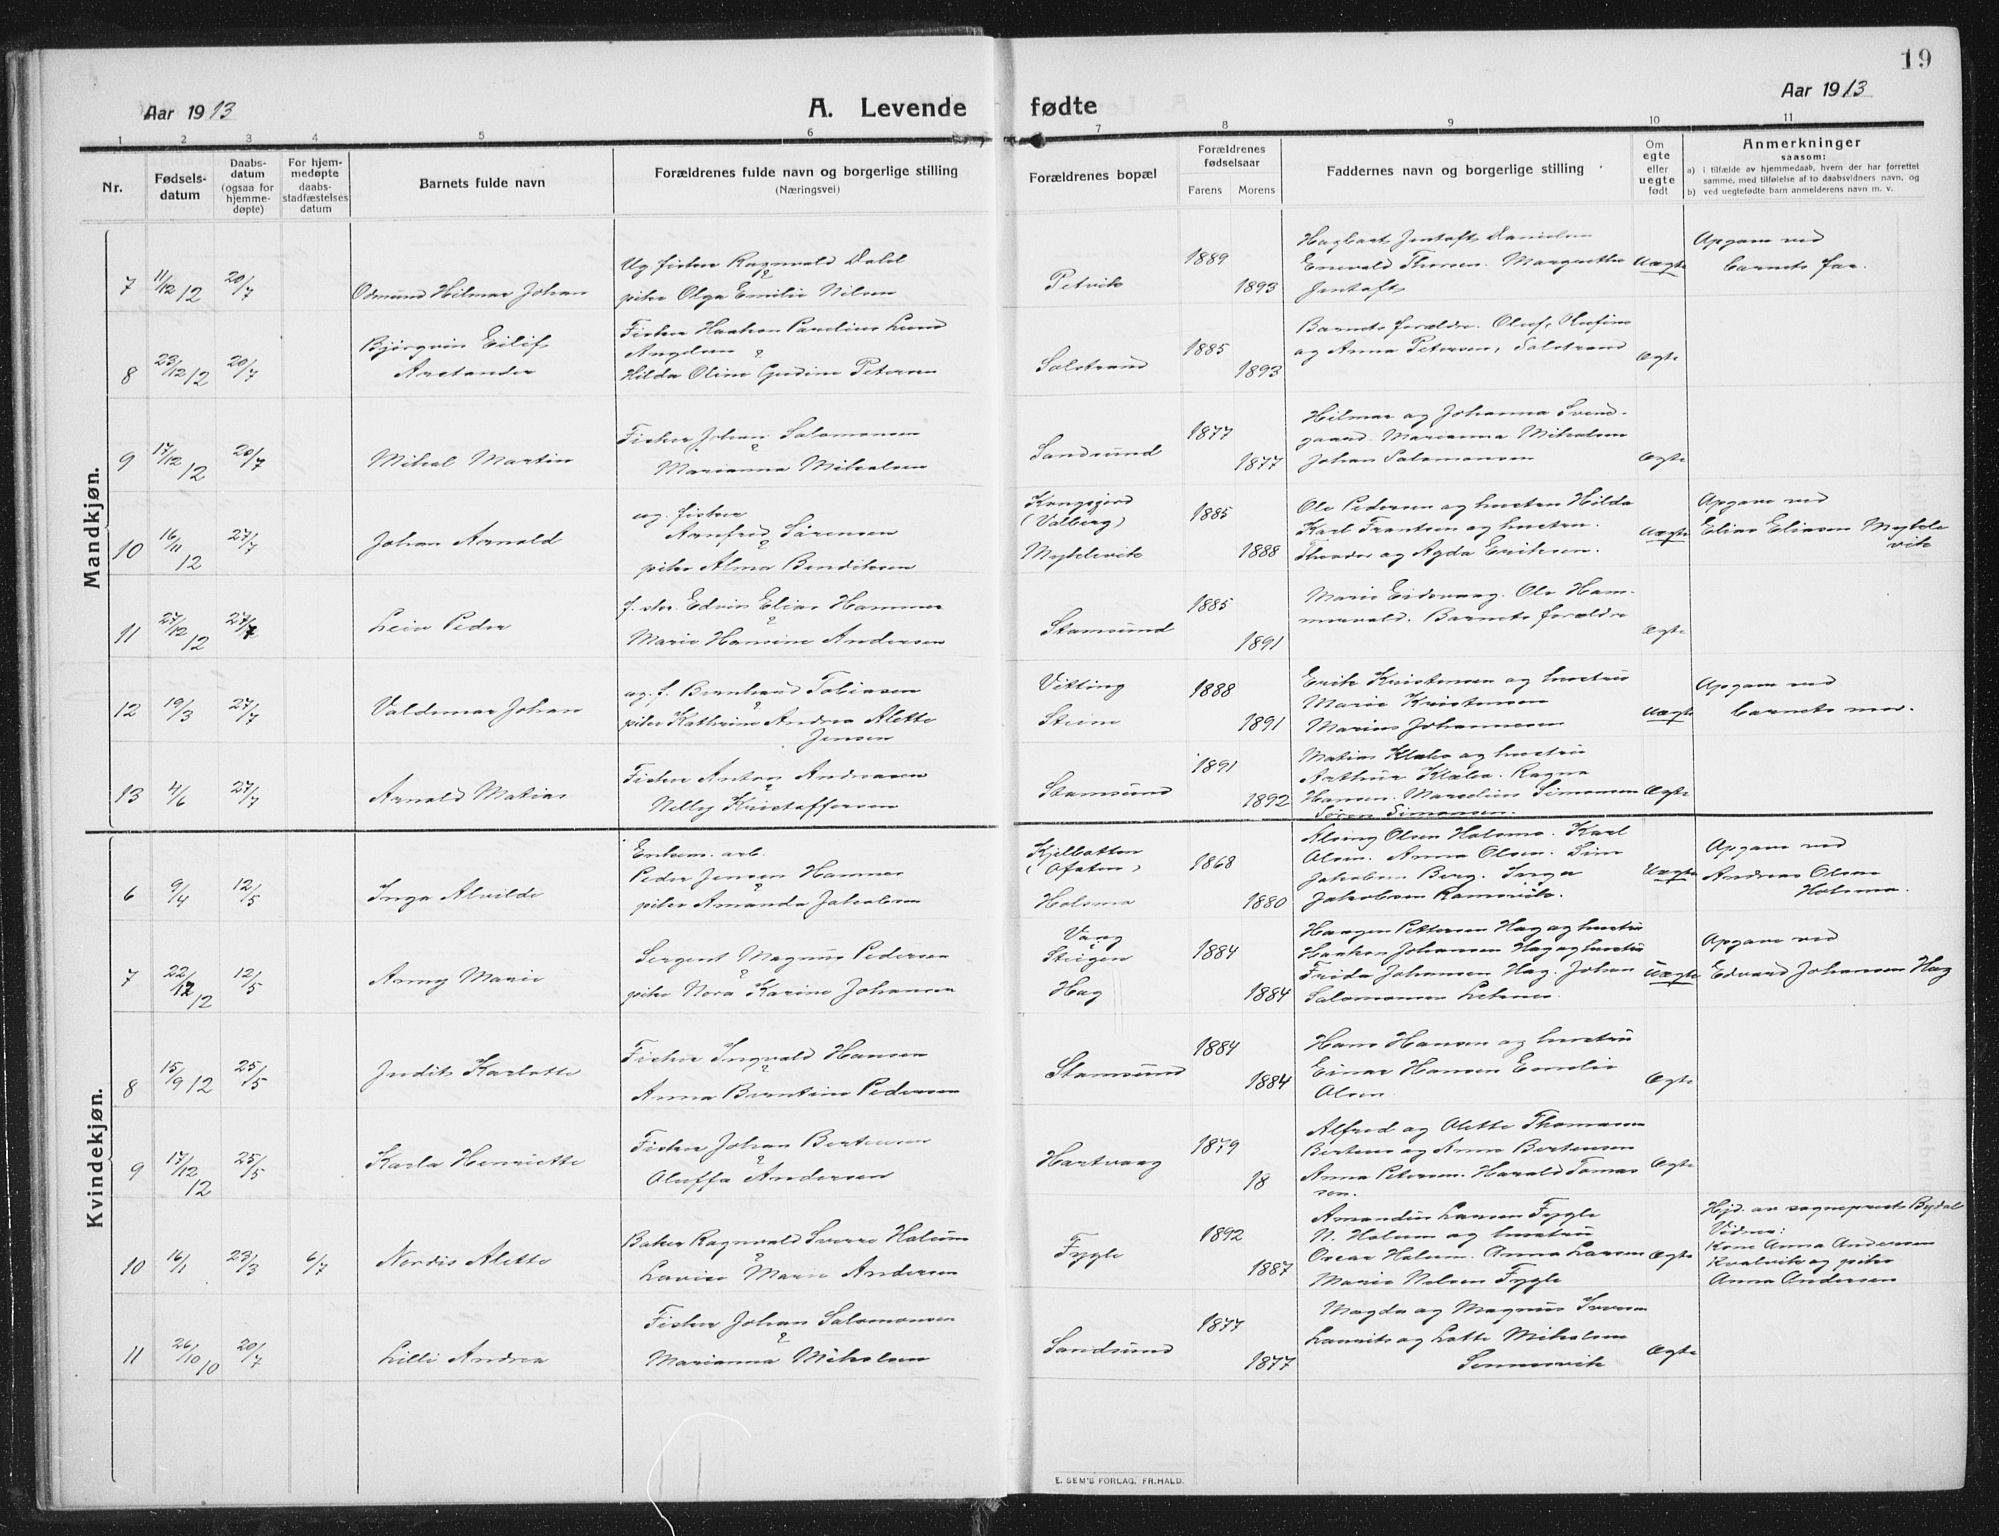 19
Aar 1913
A. Levende fødte
Aar 1913
1 2 3 4 5 6 7 8 9 10 11
Nr.
Fødsels-
datum
Daabs-
datum
(ogsaa for
hjemme-
døpte)
For hjem-
medøpte
daabs-
stadfæstelses
datum
Barnets fulde navn
Forældrenes fulde navn og borgerlige stilling
(Næringsvei)
Forældrenes bopæl
Forældrenes
fødselsaar
Farens Morens
Faddernes navn og borgerlige stilling
Om
egte
eller
uegte
født
Anmerkninger
saasom:
a) i tilfælde av hjemmedaab, hvem der har forrettet
samme, med tilføielse af to daabsvidners navn, og
b) ved uegtefødte barn anmelderens navn m. v.
Mandkjøn.
7 11/12 12 20/7
Odmund Hilmar Johan
Ug fisker Ragnvald Dahl
&
pike Olga Emilie Nilsen
Petvik
1889
1893
Hagbart Jentoft Danielsen
Enevald Thorsen. Margrethe
Jentoft
Uægte
Opgave ved
barnets far.
8 23/12 12 20/7
Bjørgvin Eilif
Arstander
Fisker Haakon Parelius Lund
Angelsen &
Hilda Oline Gurine Petersen
Solstrand
1885
1893
Barnets forældre. Oluf,
og Anna Petersen, Solstrand
Ægte
9 17/12 12 20/7
Mikal Martin
Fisker Johan Salomonsen
&
Marianna Mikalsen
Sandsund
1877
1877
Hilmar og Johanna Svend-
gaard. Marianna Mikalsen
Johan Salomonsen
Ægte
10 16/11 12 27/7
Johan Arnold
ug. fisker
Arnfred Sørensen
&
pike Alma Benditsen
Kongsjord
(Valberg)
Mybelevik
1885
1888
Ole Pedersen og hustru Hilda
Karl Frantsen og hustru.
Theodor og Agda Eriksen.
Uægte
Opgave ved
Elias Eliasen Mybele
vik
11 27/12 12 27/7
Leiv Peder
f. skr. Edvin Elias Hammer
&
Marie Hansine Andersen
Stamsund
1885
1891
Marie Eidevaag. Ole Ham-
mervald. Barnets forældre
Ægte
12 19/3 27/7
Valdemar Johan
ug. f. Bernhard Tobiasen
&
pike Kathrine Andrea Alette
Jensen
Vitting
Steine
1888
1891
Erik Kristensen og hustru
Marie Kristensen
Marius Johannesen
Uægte
Opgave ved
barnets mor.
13 4/6 27/7
Arnold Matias
Fisker Anton Andreasen
&
Nelly Kristoffersen
Stamsund
1891
1892
Matias Klæbo og hustru
Arthur Klæbo. Ragna
Hansen. Marselius Simonsen
Søren Simonsen.
Ægte
Kvindekjøn.
6 9/4 12/5
Inga Alvilde
Enkem. arb.
Peder Jensen Hamnes
&
pike Amanda Jakobsen
Kjelbotten
(Ofoten)
Holsmo
1868
1880
Alving Olsen Holsmo. Karl
Olsen. Anna Olsen. Sim
Jakobsen Berg. Inga
Jakobsen Ramsvik.
Uægte
Opgave ved
Andreas Olsen
Holsmo.
7 22/12 12 12/5
Anny Marie
Sergent Magnus Pedersen
&
pike Nora Karine Johansen
Vang
Steigen
Hag
1884
1884
Haagen Pettersen Hag og hustru
Haakon Johansen Hag og hustru
Frida Johansen Hag. Johan
Salomonsen Leknes.
Uægte
Opgave ved
Edvard Johansen Hag
8 15/9 12 25/5
Judit Karlotte
Fisker Ingvald Hansen
&
Anna Berntine Pedersen
Stamsund
1884
1884
Hans Hansen og hustru
Einar Hansen Emelie
Olsen
Ægte
9 17/12 12 25/5
Karla Henriette
Fisker Johan Berteusen
&
Oluffa Andersen
Hartvaag
1879
18
Alfred og Olette Thomasen
Berteus og Anna Berteusen
Anna Petersen. Harald Tomas
sen.
Ægte
10 16/1 23/3 6/7
Nordis Alette
Baker Ragnvald Sverre Holum
&
Lovise Marie Andersen
Fygle
1892
1887
Amandus Larsen Fygle
N. Holum og hustru
Oscar Holum. Anna Larsen
Marie Nelsen Fygle
Ægte
Hjd. av sogneprest Bydal
Vidner:
Kone Anna Andersen
Kvalvik og pike
Anna Andersen
11 26/10 10 20/7
Lilli Andrea
Fisker Johan Salomonsen
&
Marianna Mikalsen
Sandsund
1877
1877
Magda og Magnus Iversen
Laurits og Lotte Mikalsen
Sennesvik
Ægte
E. SEM'S FORLAG, FR.HALD.